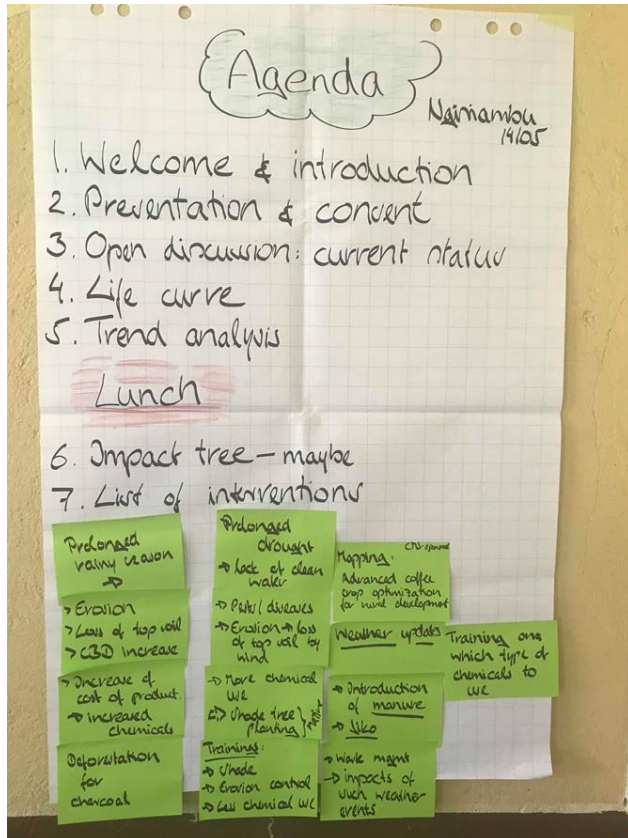 Agenda
14/05
1. Welcome & introduction
2. Presentation & consent
3. Open discussion: current status
4. Life curve
5. Trend analysis
Lunch
6. Impact tree - maybe
7. List of interventions
Prolonged
rainy season
→
> Erosion
> Loss of top soil
> CBD increase
> Increase of
cost of product.
→ increased
chemicals
Deforestation
for
charcoal
Prolonged
drought
→ Lack of clean
water
→ Pests/diseases
→ Erosion → loss
of top soil by
wind
→ More chemical
use
→ Shade tree
planting
Trainings:
→ Shade
→ Erosion control
→ Less chemical use
Mapping:
Advanced coffee
crop optimization
for rural development
Weather updates
→ Introduction
of manure
→
→ mgmt
→ impacts of
such weather
events
Training on
which type of
chemicals to
use